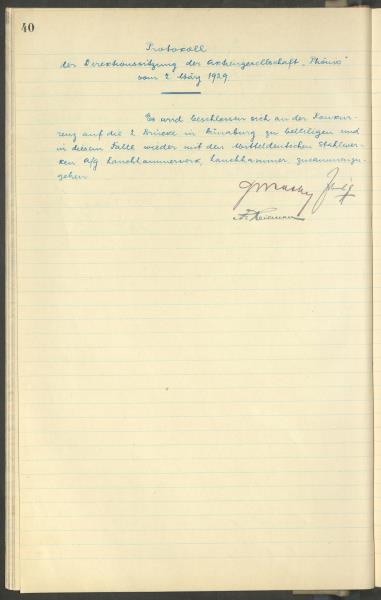 40
Protokoll
der Direktionssitzung der Aktiengesellschaft „Phönix"
vom 2. März 1929.
Es wird beschlossen sich an der Konkur-
renz auf die 2. Brücke in Dünaburg zu beteiligen und
in diesem Falle wieder mit den Mitteldeutschen Stahlwer-
ken A/G Lauchhammerwerk, Lauchhammer, zusammenzu-
gehen.